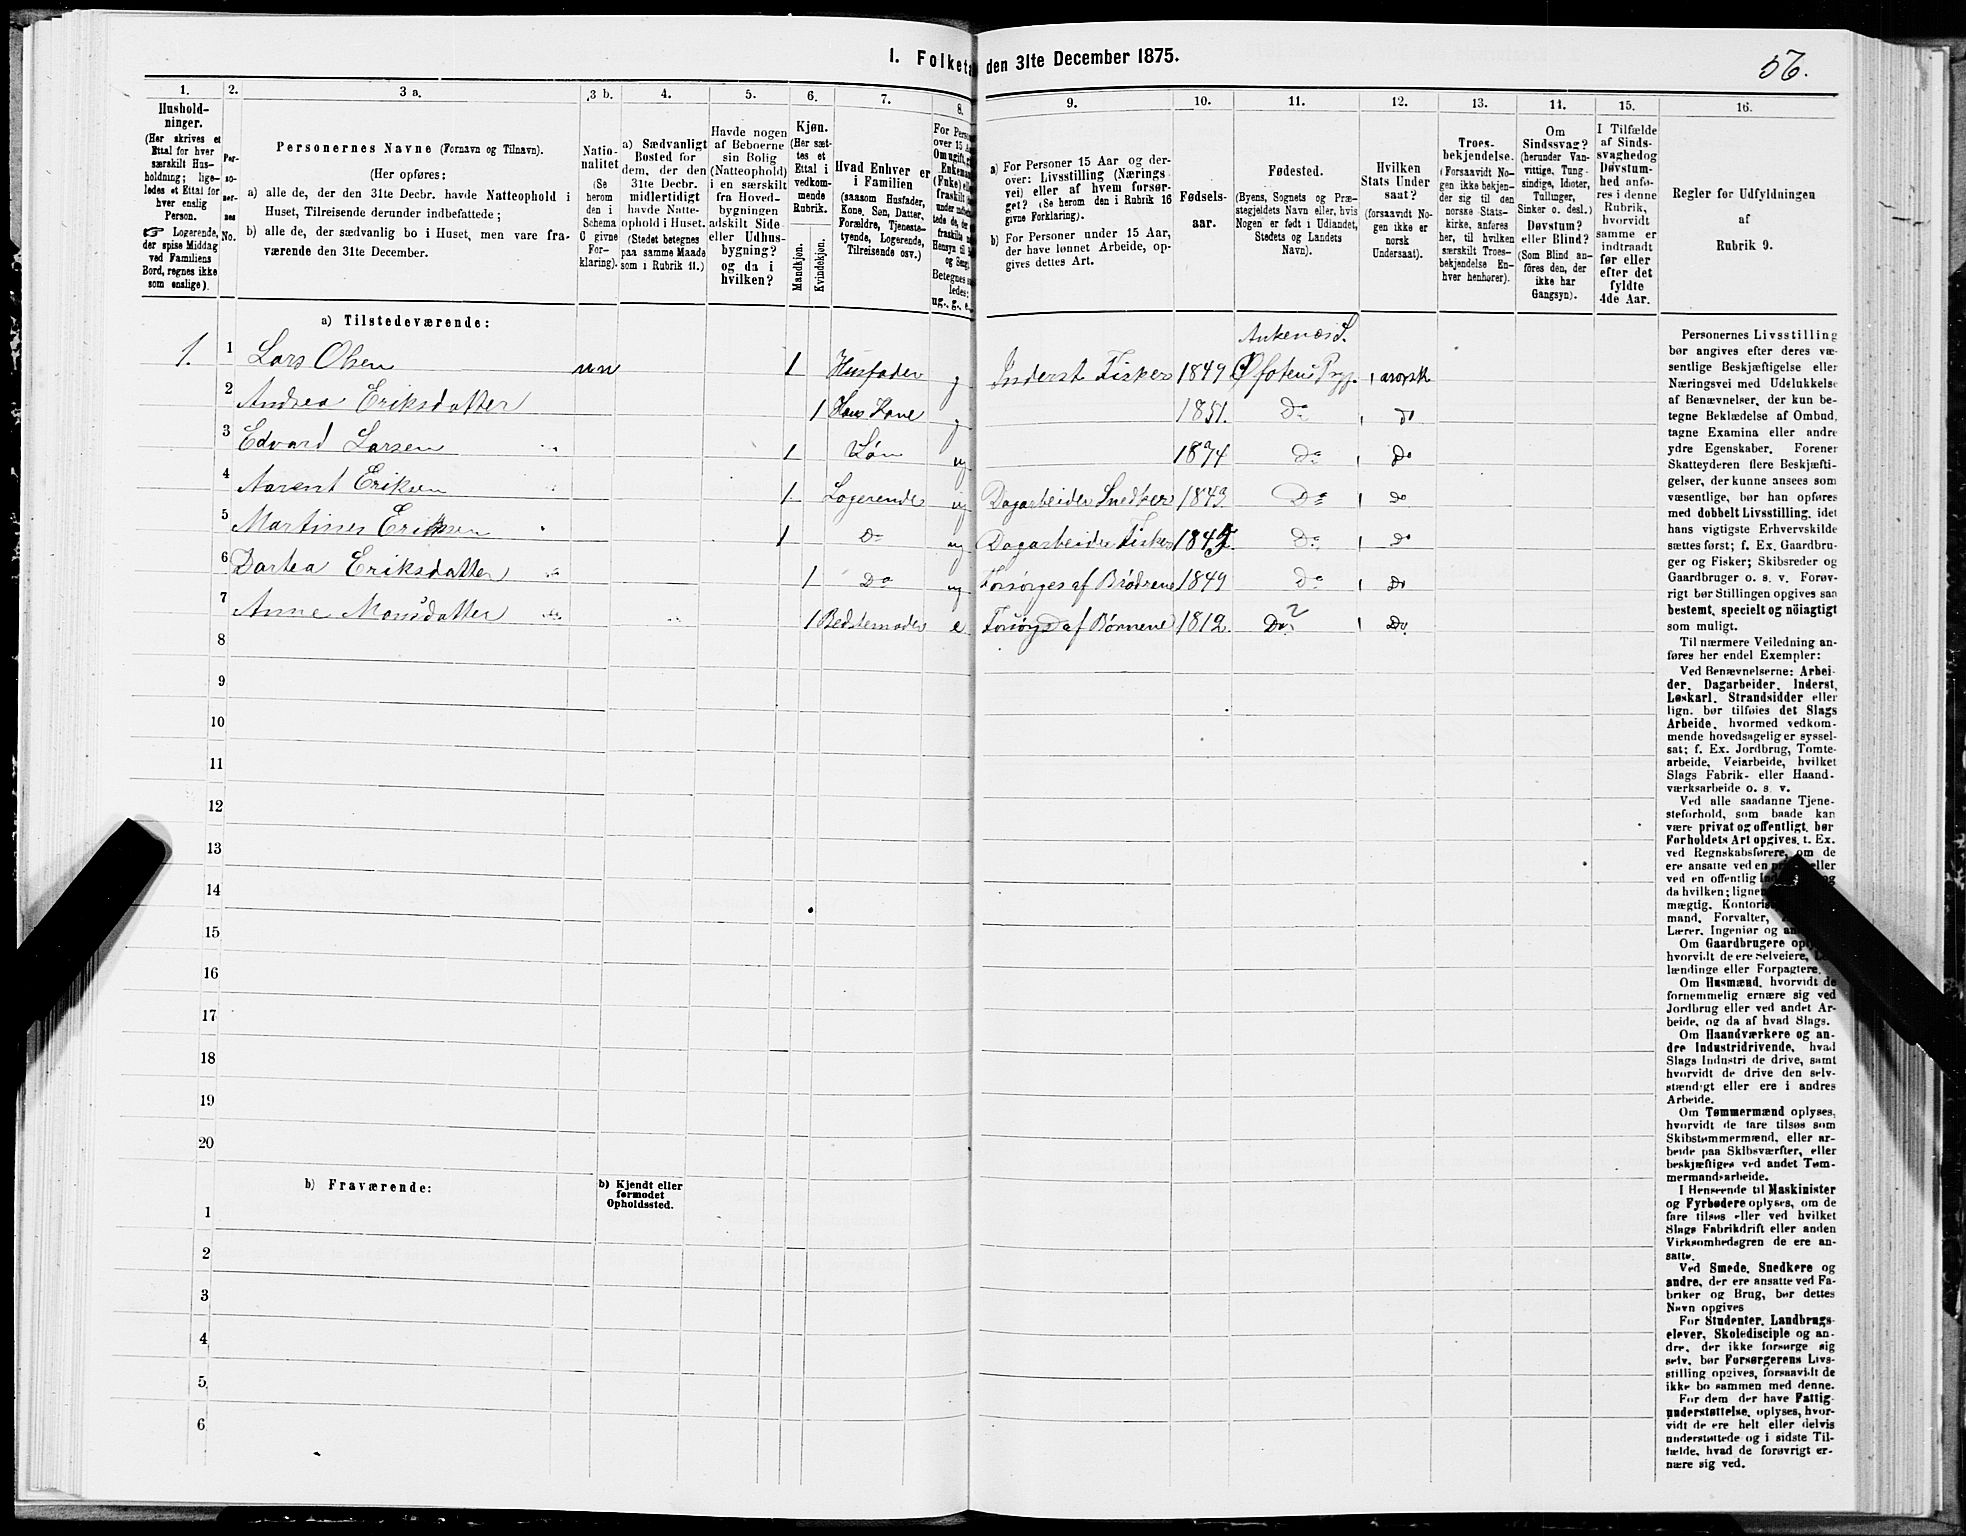 I. Folketæ den 31te December 1875.
56.
1. 2. 3 a. 3 b. 4. 5. 6. 7. 8. 9. 10. 11. 12. 13. 14. 15. 16.
Hushold-
ninger.
(Her skrives et
Ettal for hver
særskilt Hus-
holdning; lige-
ledes et Ettal for
hver enslig
Person.
☞ Logerende,
der spise Middag
ved Familiens
Bord, regnes ikke
som enslige).
Per-
so-
ner-
nes
No.
Personernes Navne (Fornavn og Tilnavn).
(Her opføres:
a) alle de, der den 31te Decbr. havde Natteophold i
Huset, Tilreisende derunder indbefattede;
b) alle de, der sædvanlig bo i Huset, men vare fra-
værende den 31te December.
Natio-
nalitet
(Se
herom
den i
Schema
C givne
For-
klaring).
a) Sædvanligt
Bosted for
dem, der den
31te Decbr.
midlertidigt
havde Natte-
ophold i Huset.
(Stedet betegnes
paa samme Maade
som i Rubrik 11.)
Havde nogen
af Beboerne
sin Bolig
(Natteophold)
i en særskilt
fra Hoved-
bygningen
adskilt Side
eller Udhus-
bygning?
og da i
hvilken?
Kjøn.
(Her sæt-
tes et
Ettal i
vedkom-
mende
Rubrik.
Mandkjøn.
Kvindekjøn.
Hvad Enhver er
i Familien
(saasom Husfader,
Kone, Søn, Datter,
Forældre, Tjeneste-
tyende, Logerende,
Tilreisende osv.)
For Perso
over 15 Aa
Om ugift, g
Enkema
(Fnke) el
fraskilt
Hensyn til
og Seng
Betegnes s
ledes:
ug., g., e.
a) For Personer 15 Aar og der-
over: Livsstilling (Nærings
vei) eller af hvem forsør-
get? (Se herom den i Rubrik 16
givne Forklaring).
b) For Personer under 15 Aar,
der have lønnet Arbeide, op-
gives dettes Art.
Fødsels-
aar.
Fødested.
(Byens, Sognets og Præ-
stegjeldets Navn eller, hvis
Nogen er født i Udlandet,
Stedets og Landets
Navn).
Hvilken
Stats Under
saat?
(forsaavidt No-
gen ikke er
norsk
Undersaat).
Troes-
bekjendelse.
(Forsaavidt No-
gen ikke bekjen-
der sig til den
norske Stats-
kirke, anføres
her, til hvilken
særskilt Troes-
bekjendelse En-
hver henhører).
Om
Sindssvag?
(herunder Van-
vittige, Tung-
sindige, Idioter,
Tullinger,
Sinker o. desl.)
Døvstum?
eller Blind?
(Som Blind an-
føres den, der
ikke har
Gangsyn).
I Tilfælde
af Sinds-
svaghedog
Døvstum-
hed anfø-
res i denne
Rubrik,
hvorvidt
samme er
indtraadt
før eller
efter det
fyldte
4de Aar.
Regler for Udfyldningen
af
Rubrik 9.
a) Tilstedeværende:
Ankenæs S.
1. 1 Lars Olsen nn 1 Husfader g Inderst Fisker 1849 Øfotens Prgj. 1 norsk
2 Andrea Eriksdatter 1 Hans Kone g 1851. Do 1 do
3 Edvard Larsen 1 Søn ug 1874 Do 1 Do
4 Aarent Eriksen 1 Logerende ug Dagarbeider Snedker 1843. Do 1 Do
5 Martines Eriksen 1 Do ug Dagarbeider Fisker Do 1 Do
6 Dortea Eriksdatter 1 Do ug Forsørges af Brødrene 1849 Do 1 Do
7 Anne Monsdatter 1 Bedstemoder e Forsørges af Børnene 1812. Do? 1 Do.
8
9
10
11
12
13
14
15
16
17
18
19
20
b) Fraværende:
b) Kjendt eller
formodet
Opholdssted.
1
2
3
4
5
6
Personernes Livsstilling
bør angives efter deres væ-
sentlige Beskjæftigelse eller
Næringsvei med Udelukkelse
af Benævnelser, der kun be-
tegne Beklædelse af Ombud,
tagne Examina eller andre
ydre Egenskaber. Forener
Skatteyderen flere Beskjæfti-
gelser, der kunne ansees som
væsentlige, bør han opføres
med dobbelt Livsstilling, idet
hans vigtigste Erhvervskilde
sættes først; f. Ex. Gaardbru-
ger og Fisker; Skibsreder og
Gaardbruger o. s. v. Forøv-
rigt bør Stillingen opgives saa
bestemt, specielt og nöiagtigt
som muligt.
Til nærmere Veiledning an-
føres her endel Exempler:
Ved Benævnelserne: Arbei-
der, Dagarbeider, Inderst,
Løskarl, Strandsidder eller
lign. bør tilføies det Slags
Arbeide, hvormed vedkom-
mende hovedsagelig er syssel-
sat; f. Ex. Jordbrug, Tomte-
arbeide, Veiarbeide, hvilket
Slags Fabrik- eller Haand-
værksarbeide o. s. v.
Ved alle saadanne Tjene-
steforhold, som baade kan
være privat og offentligt, bør
Forholdets Art opgives, t. Ex.
ved Regnskabsførere, om de
ere ansatte ved en eller
ved en offentlig og
da hvilken; lignen
mægtig, Kontoris
mand, Forvalter,
Lærer, Ingeniør og an
Om Gaardbrugere oply
hvorvidt de ere Selveiere, Le
lændinge eller Forpagtere.
Om Husmænd, hvorvidt de
fornemmelig ernære sig ved
Jordbrug eller ved andet Ar-
beide, og da af hvad Slags.
Om Haandværkere og an-
dre Industridrivende, hvad
Slags Industri de drive, samt
hvorvidt de drive den selv-
stændigt eller ere i andres
Arbeide.
Om Tømmermænd oplyses,
hvorvidt de fare tilsøs som
Skibstømmermænd, eller ar-
beide paa Skibsværfter, eller
beskjæftiges ved andet Tøm-
mermandsarbeide.
I Henseende til Maskinister
og Fyrbødere oplyses, om de
fare tilsøs eller ved hvilket
Slags Fabrikdrift eller anden
Virksomhedsgren de ere an-
satte.
Ved Smede, Snedkere og
andre, der ere ansatte ved Fa-
briker og Brug, bør dettes
Navn opgives
For Studenter, Landbrugs-
elever, Skoledisciple og an-
dre, der ikke forsørge sig
selv, bør Forsørgerens Livs-
stilling opgives, forsaavidt de
ikke bo sammen med denne.
For dem der have Fattig-
understøttelse, oplyses, hvor-
vidt de ere helt eller delvis
understøttede og i sidste Til-
fælde, hvad de forøvrigt er-
nære sig ved.